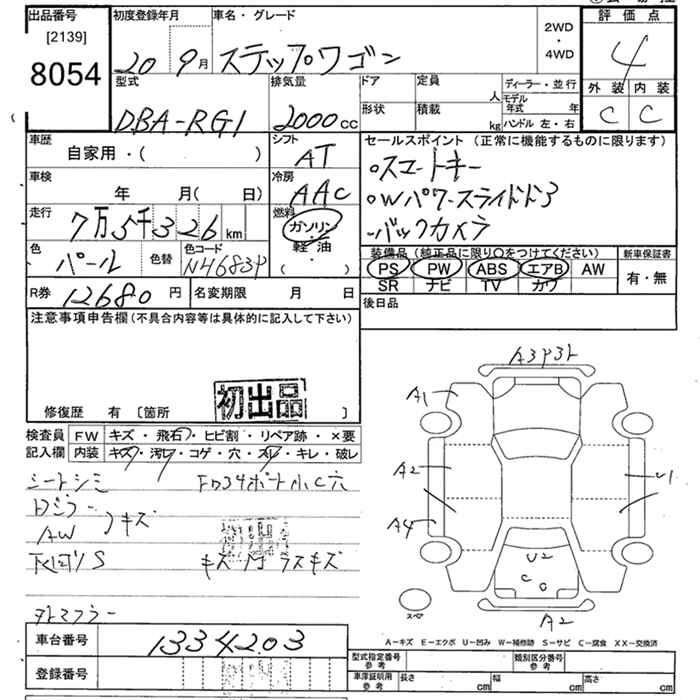 出品番号
[2139]
8054
初度登録年月
20 9月
車名・グレード
ステップワゴン
2WD
・
4WD
評価点
4
外装 内装
C C
型式
DBA-RG1
排気量
2000cc
ドア
形状
定員
人
積載
kg
ディーラー・並行
モデル年式 年
ハンドル 左・右
車歴
自家用・( )
シフト
AT
セールスポイント(正常に機能するものに限ります)
○スマートキー
○Wパワースライドドア
バックカメラ
車検
年 月(日)
冷房
AAC
走行
7万5千326km
燃料
ガソリン・
軽・油
( )
色
パール
色替
色コード
NH683P
装備品(純正品に限り○をつけてください)
PS PW ABS エアB AW
SR ナビ TV カワ
新車保証書
有・無
R券
12680円
名変期限 月 日
後日品
注意事項申告欄(不具合内容等は具体的に記入して下さい)
初出品
修復歴 有 [箇所 ]
検査員
記入欄
FW キズ・飛石・ヒビ割・リペア跡・×要
内装 キズ・汚レ・コゲ・穴・スレ・キレ・破レ
シートシミ
AW キズ
下回りS
A3P3
A1
A2
A4
U1
U2
C
A2
スペア
A-キズ E-エクボ U-凹み W-補修跡 S-サビ C-腐食 XX-交換済
車台番号
1334203
登録番号
型式指定番号
参考
類別区分番号
参考
車庫証明用
参考
長さ cm
幅 cm
高さ cm